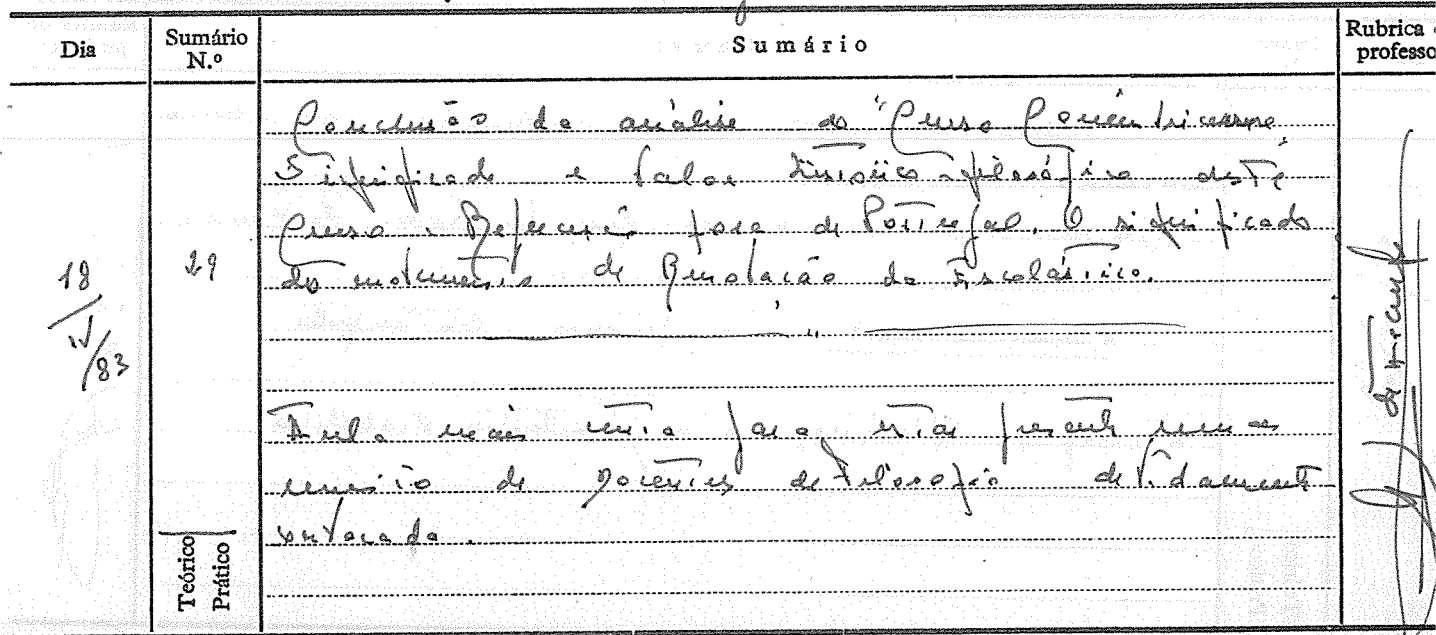 Dia
Sumário N.º
Sumário
Rubrica
professo
18/IV/83
29
Conclusão da análise do "Curso Conimbricense"
Significado e valor histórico-filosófico deste
Curso. Repercussão fora de Portugal. O significado
do movimento de Renovação da Escolástica.
Aula mais curta para estar presente numa
reunião de docentes de Filosofia devidamente
convocada.
Teórico
Prático